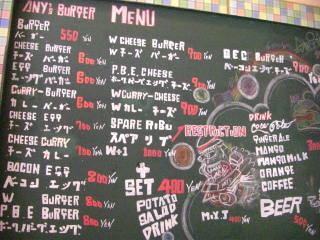 ANY'S BURGER MENU
BURGER
バーガー 550 YEN
CHEESE BURGER
チーズ バーガー 600 YEN
EGG BURGER
エッグ バーガー 600 YEN
CURRY-BURGER
カレー バーガー 600 YEN
CHEESE EGG
チーズ エッグ 700 YEN
CHEESE CURRY
チーズ カレー
BACON EGG
ベーコン エッグ 800
W BURGER 800
P.B.E BURGER
W CHEESE BURGER
W チーズ バーガー 900 YEN
P.B.E. CHEESE
W CURRY-CHEESE
W カレー チーズ 900 YEN
SPARE RIBU
スペアリブ
W+1 1000 YEN
+
SET 400 YEN
POTATO
SALAD
DRINK
B.E.C BURGER
ベーコンエッグチーズ 900
DESTRUCTION
DRINK
GINGERALE
MANGO
MANGOMILK
ORANGE
COFFEE
BEER 500 YEN